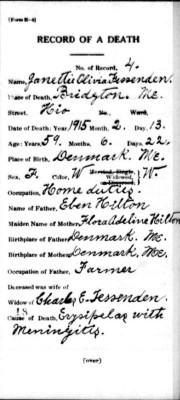 (Form R-4)
RECORD OF A DEATH
No. of Record, 4.
Name, Janette Olivia Fessenden.
Place of Death, Bridgton, Me.
Street, Hio No. Ward,
Date of Death: Year, 1915 Month, 2. Day, 13.
Age: Years, 59. Months, 6. Days, 22.
Place of Birth, Denmark, Me.
Sex, F. Color, W Married, Single, Widowed, or Divorced, } W
Occupation, Home duties.
Name of Father, Eben Hilton
Maiden Name of Mother, Flora Adeline Hilton
Birthplace of Father, Denmark, Me.
Birthplace of Mother, Denmark, Me.
Occupation of Father, Farmer
Deceased was wife of
Widow of Charles E. Fessenden.
18
Cause of Death, Erysipelas with
Meningitis.
(over)